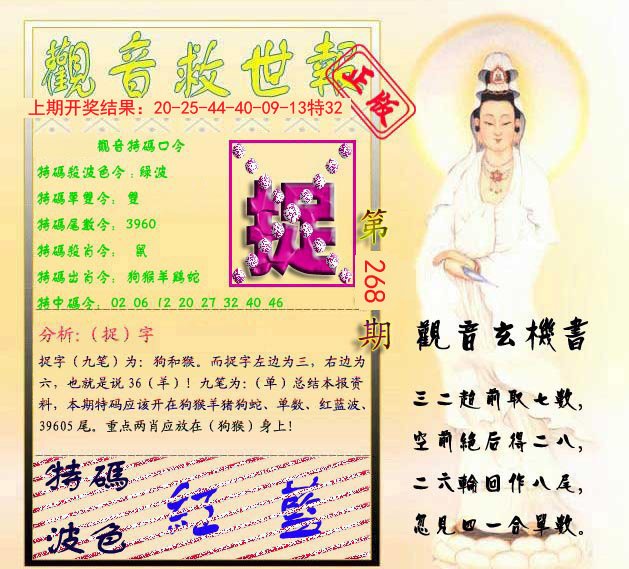 觀音救世報
正版
上期开奖结果：20-25-44-40-09-13特32
觀音特碼口令
特碼殺波色令：綠波
特碼單雙令： 雙
特碼尾數令： 3960
特碼殺肖令： 鼠
特碼出肖令： 狗猴羊鷄蛇
特中碼令： 02 06 12 20 27 32 40 46
捉
第
268
期
分析：（捉）字
捉字（九笔）为：狗和猴。而捉字左边为三，右边为
六，也就是说36（羊）！九笔为：（单）总结本报资
料，本期特码应该开在狗猴羊猪狗蛇、单数、红蓝波、
39605尾。重点两肖应放在（狗猴）身上！
特碼
波色
紅 藍
觀音玄機書
三二趙前取七數，
空前絶后得二八，
二六輪回作八尾，
忽見四一合單數。